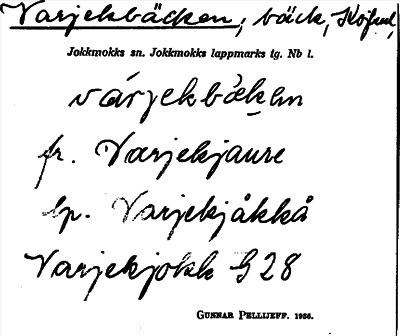 Varjekbäcken, bäck,
Jokkmokks sn. Jokkmokks lappmarks tg. Nb l.
várjekbäken
fr. Varjekjaure
lp. Varjekjåkkå
Varjekjokk G 28
GUNNAR PELLIJEFF. 1956.